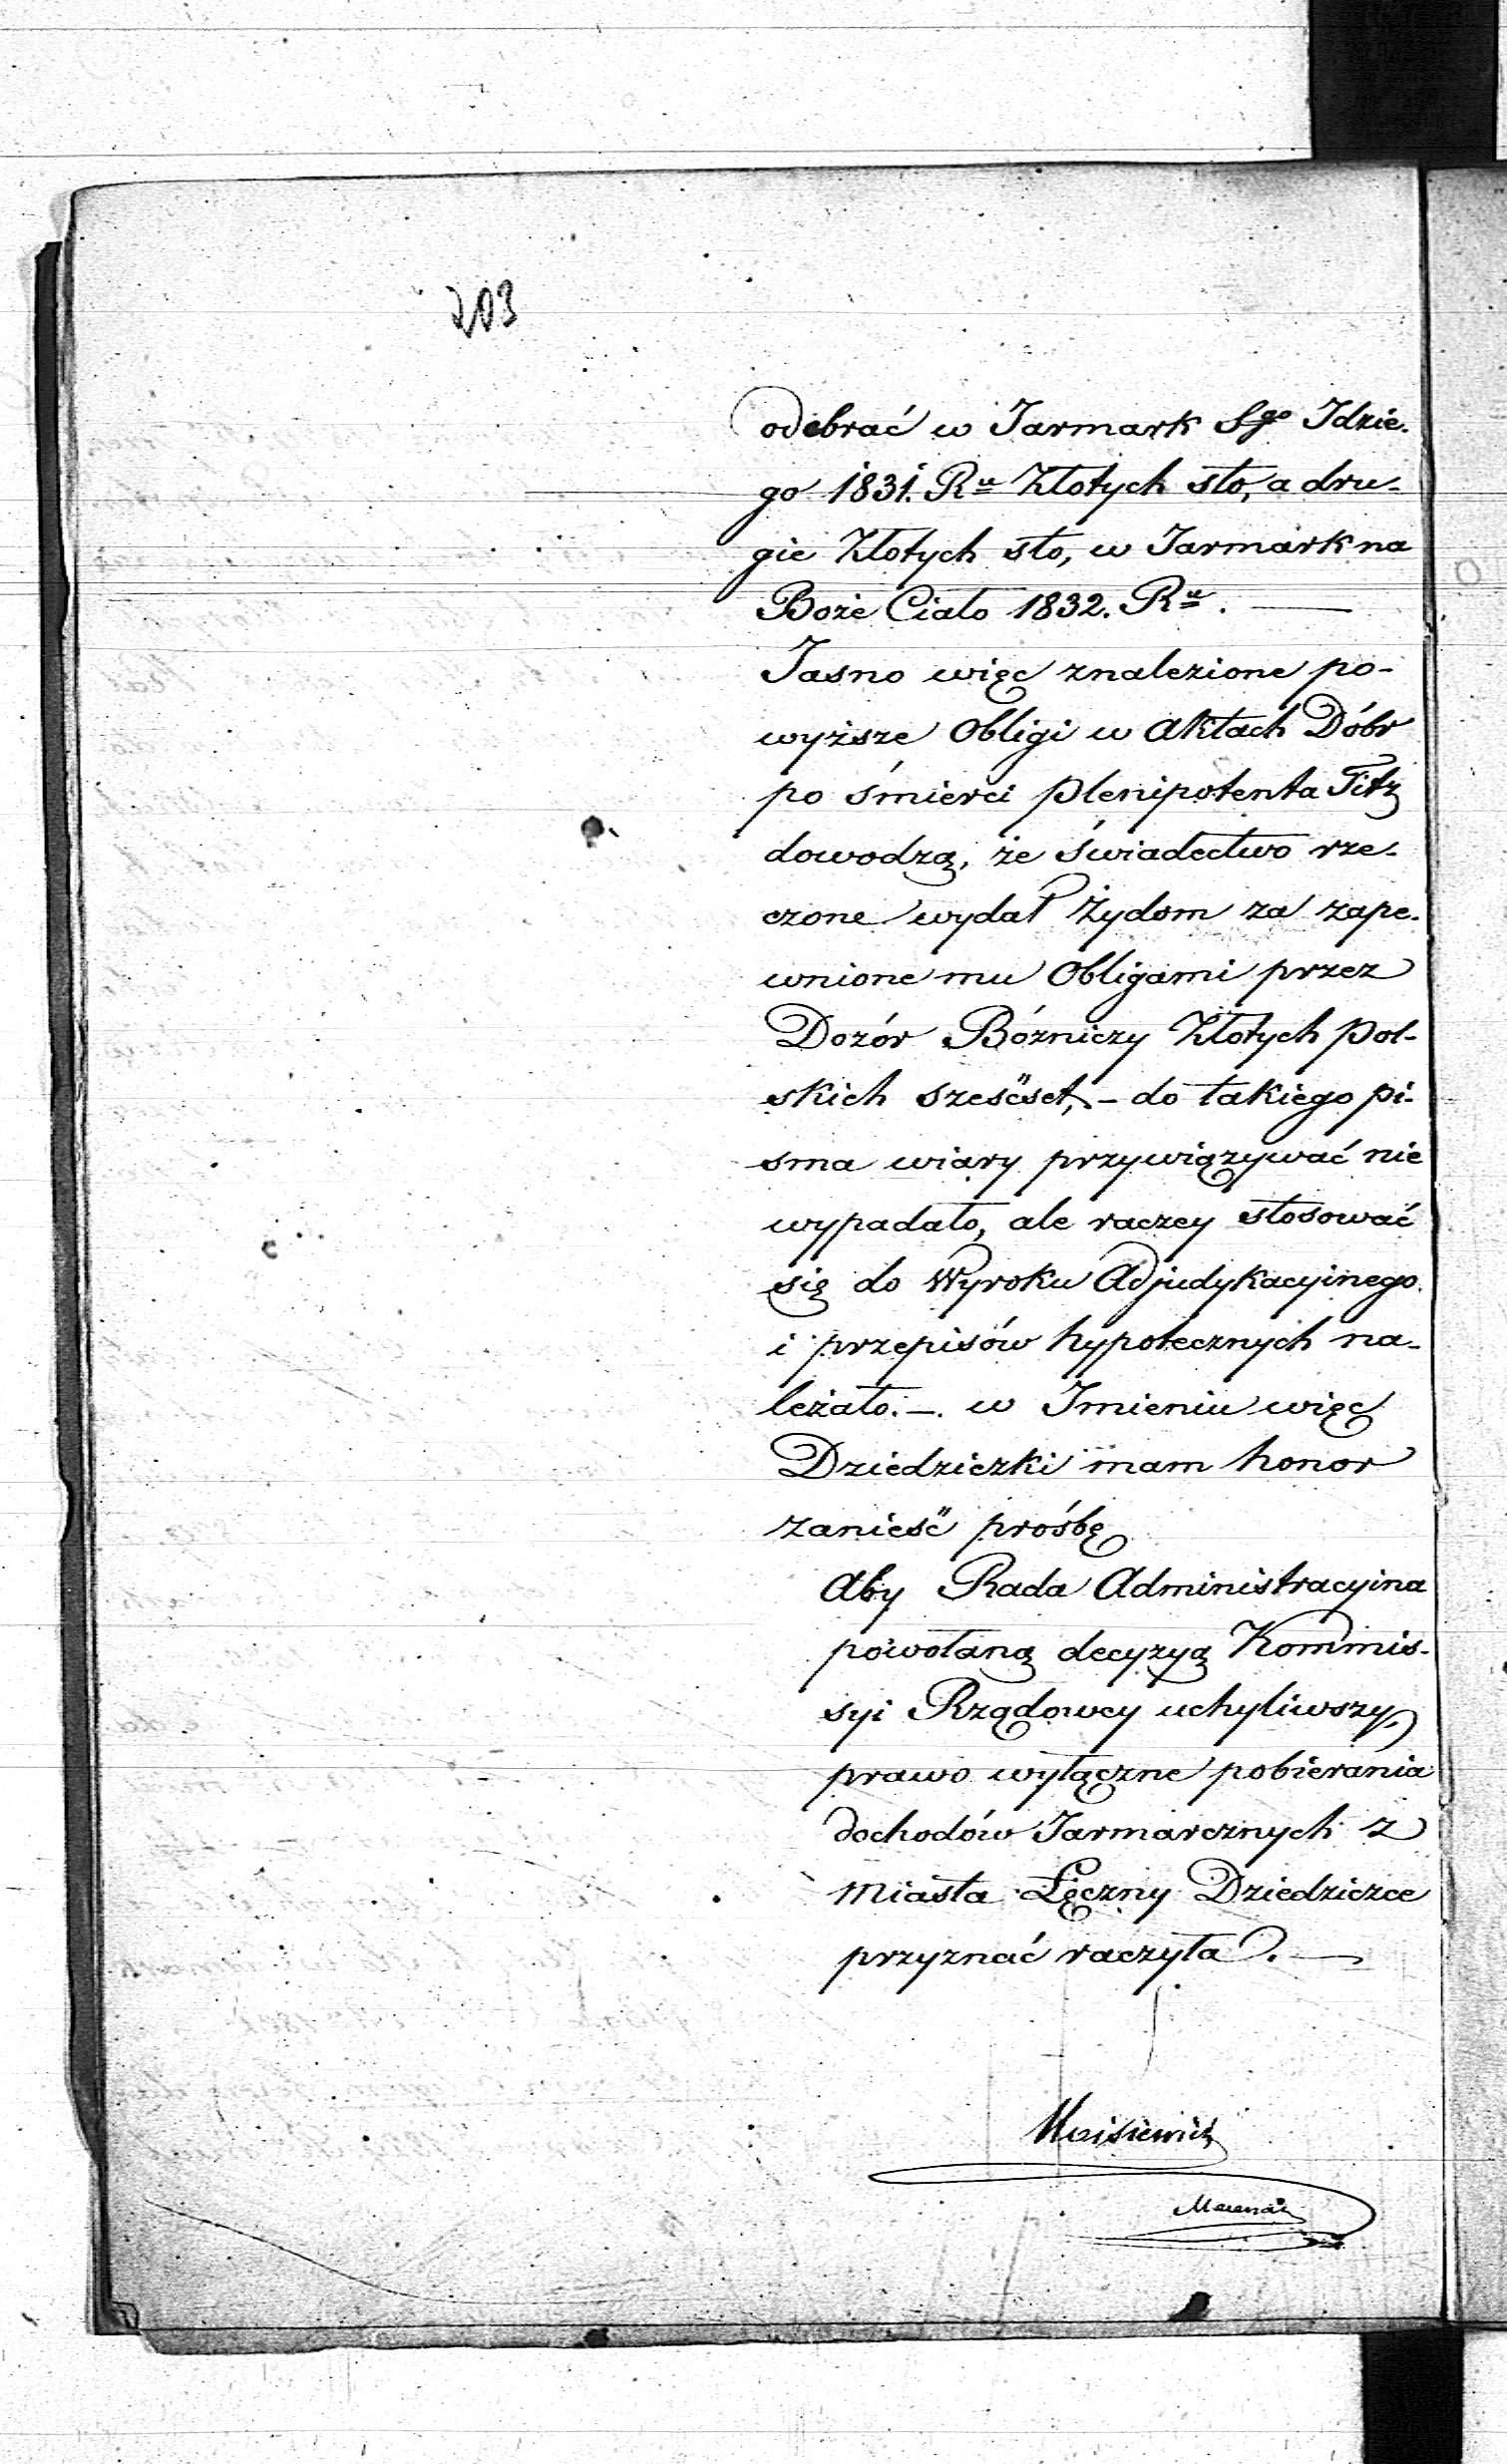 203
odebrać w Jarmark Sgo Idzie-
go 1831. Ru Złotych sto, a dru-
gie Złotych sto, w Jarmark na
Boże Ciało 1832. Ru. —
Jasno więc znalezione po-
wyższe Obligi w Aktach Dóbr
po śmierci Plenipotenta Titz
dowodzą, że świadectwo rze-
czone wydał Żydom za zape-
wnione mu Obligami przez
Dozór Bóżniczy Złotych Pol-
skich sześćset, – do takiego pi-
sma wiary przywiązywać nie
wypadało, ale raczey stosować
się do Wyroku Adjudykacyinego
i przepisów hypotecznych na-
leżało. –. w Imieniu więc
Dziedziczki mam honor
zanieść prośbę
Aby Rada Administracyina
powołaną decyzyą Kommis-
syi Rządowey uchyliwszy,
prawo wyłączne pobierania
dochodów Jarmarcznych z
Miasta Łęczny Dziedziczce
przyznać raczyła. —